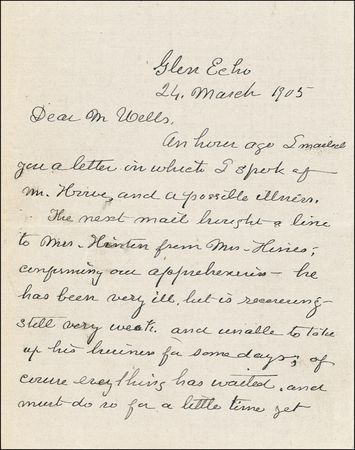 Glen Echo
24. March 1905
Dear M Wells.
An hour ago I mailed
you a letter in which I spok of
Mr. and a possible illness.
The next mail brought a line
to Mrs. Hinton from Mrs. Hines;
confirming our apprehensions - he
has been very ill, but is recovering -
still very weak. and unable to take
up his business for some days; of
course everything has waited. and
must do so for a little time yet